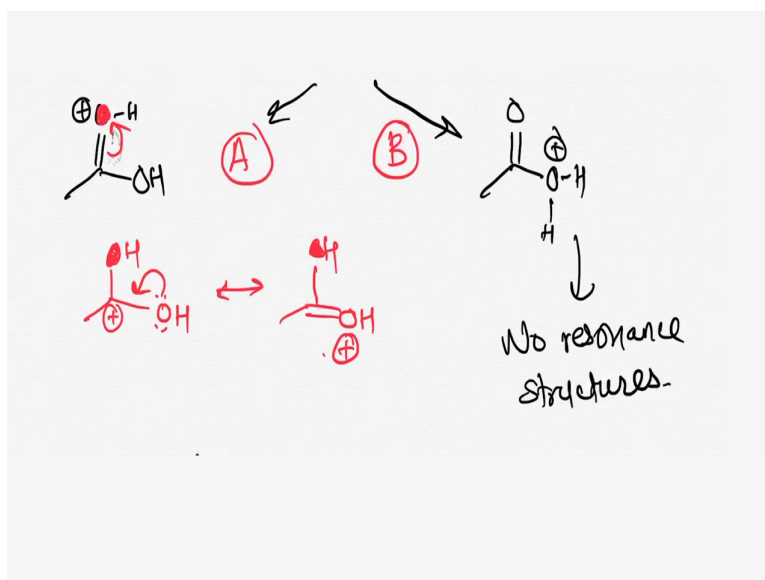 ⊕ O-H
OH
A
B
O
⊕
O-H
H
OH
⊕
OH
OH
OH
⊕
No resonance
structures.